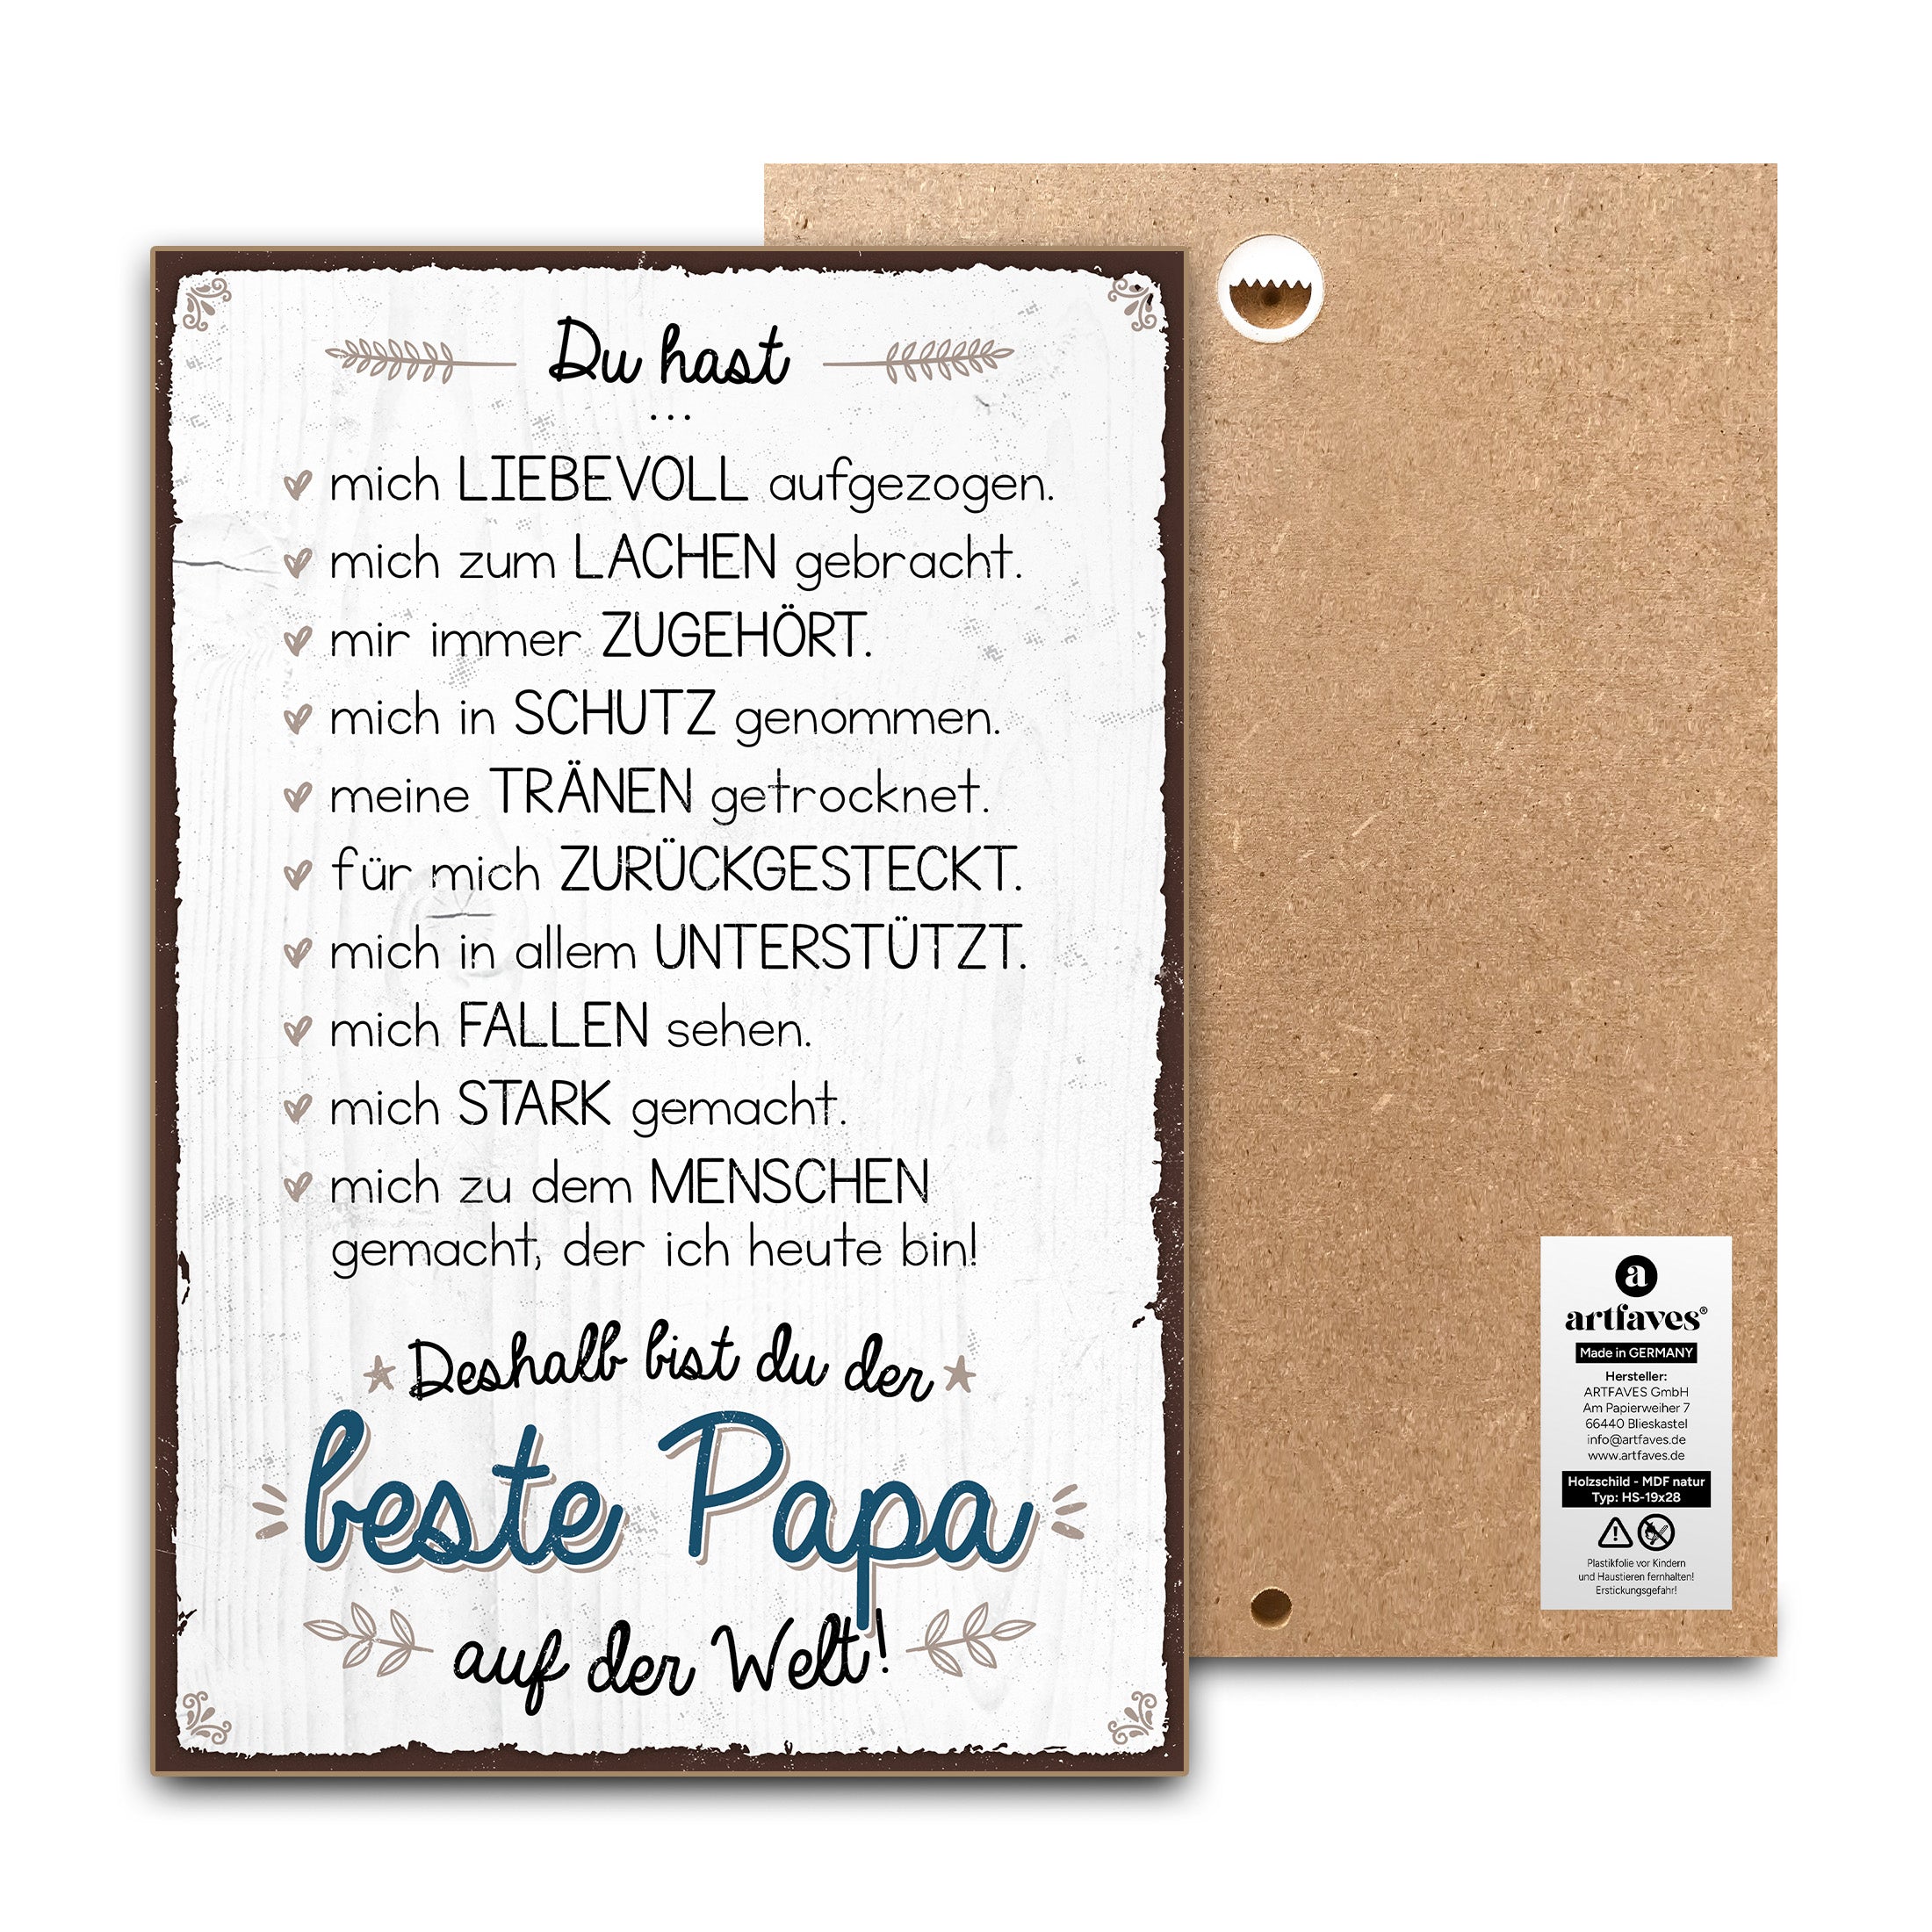 Du hast
...
mich LIEBEVOLL aufgezogen.
mich zum LACHEN gebracht.
mir immer ZUGEHÖRT.
mich in SCHUTZ genommen.
meine TRÄNEN getrocknet.
für mich ZURÜCKGESTECKT.
mich in allem UNTERSTÜTZT.
mich FALLEN sehen.
mich STARK gemacht.
mich zu dem MENSCHEN
gemacht, der ich heute bin!
Deshalb bist du der
beste Papa
auf der Welt!
a
artfaves®
Made in GERMANY
Hersteller:
ARTFAVES GmbH
Am Papierweiher 7
66440 Blieskastel
info@artfaves.de
www.artfaves.de
Holzschild - MDF natur
Typ: HS-19x28
Plastikfolie vor Kindern
und Haustieren fernhalten!
Erstickungsgefahr!